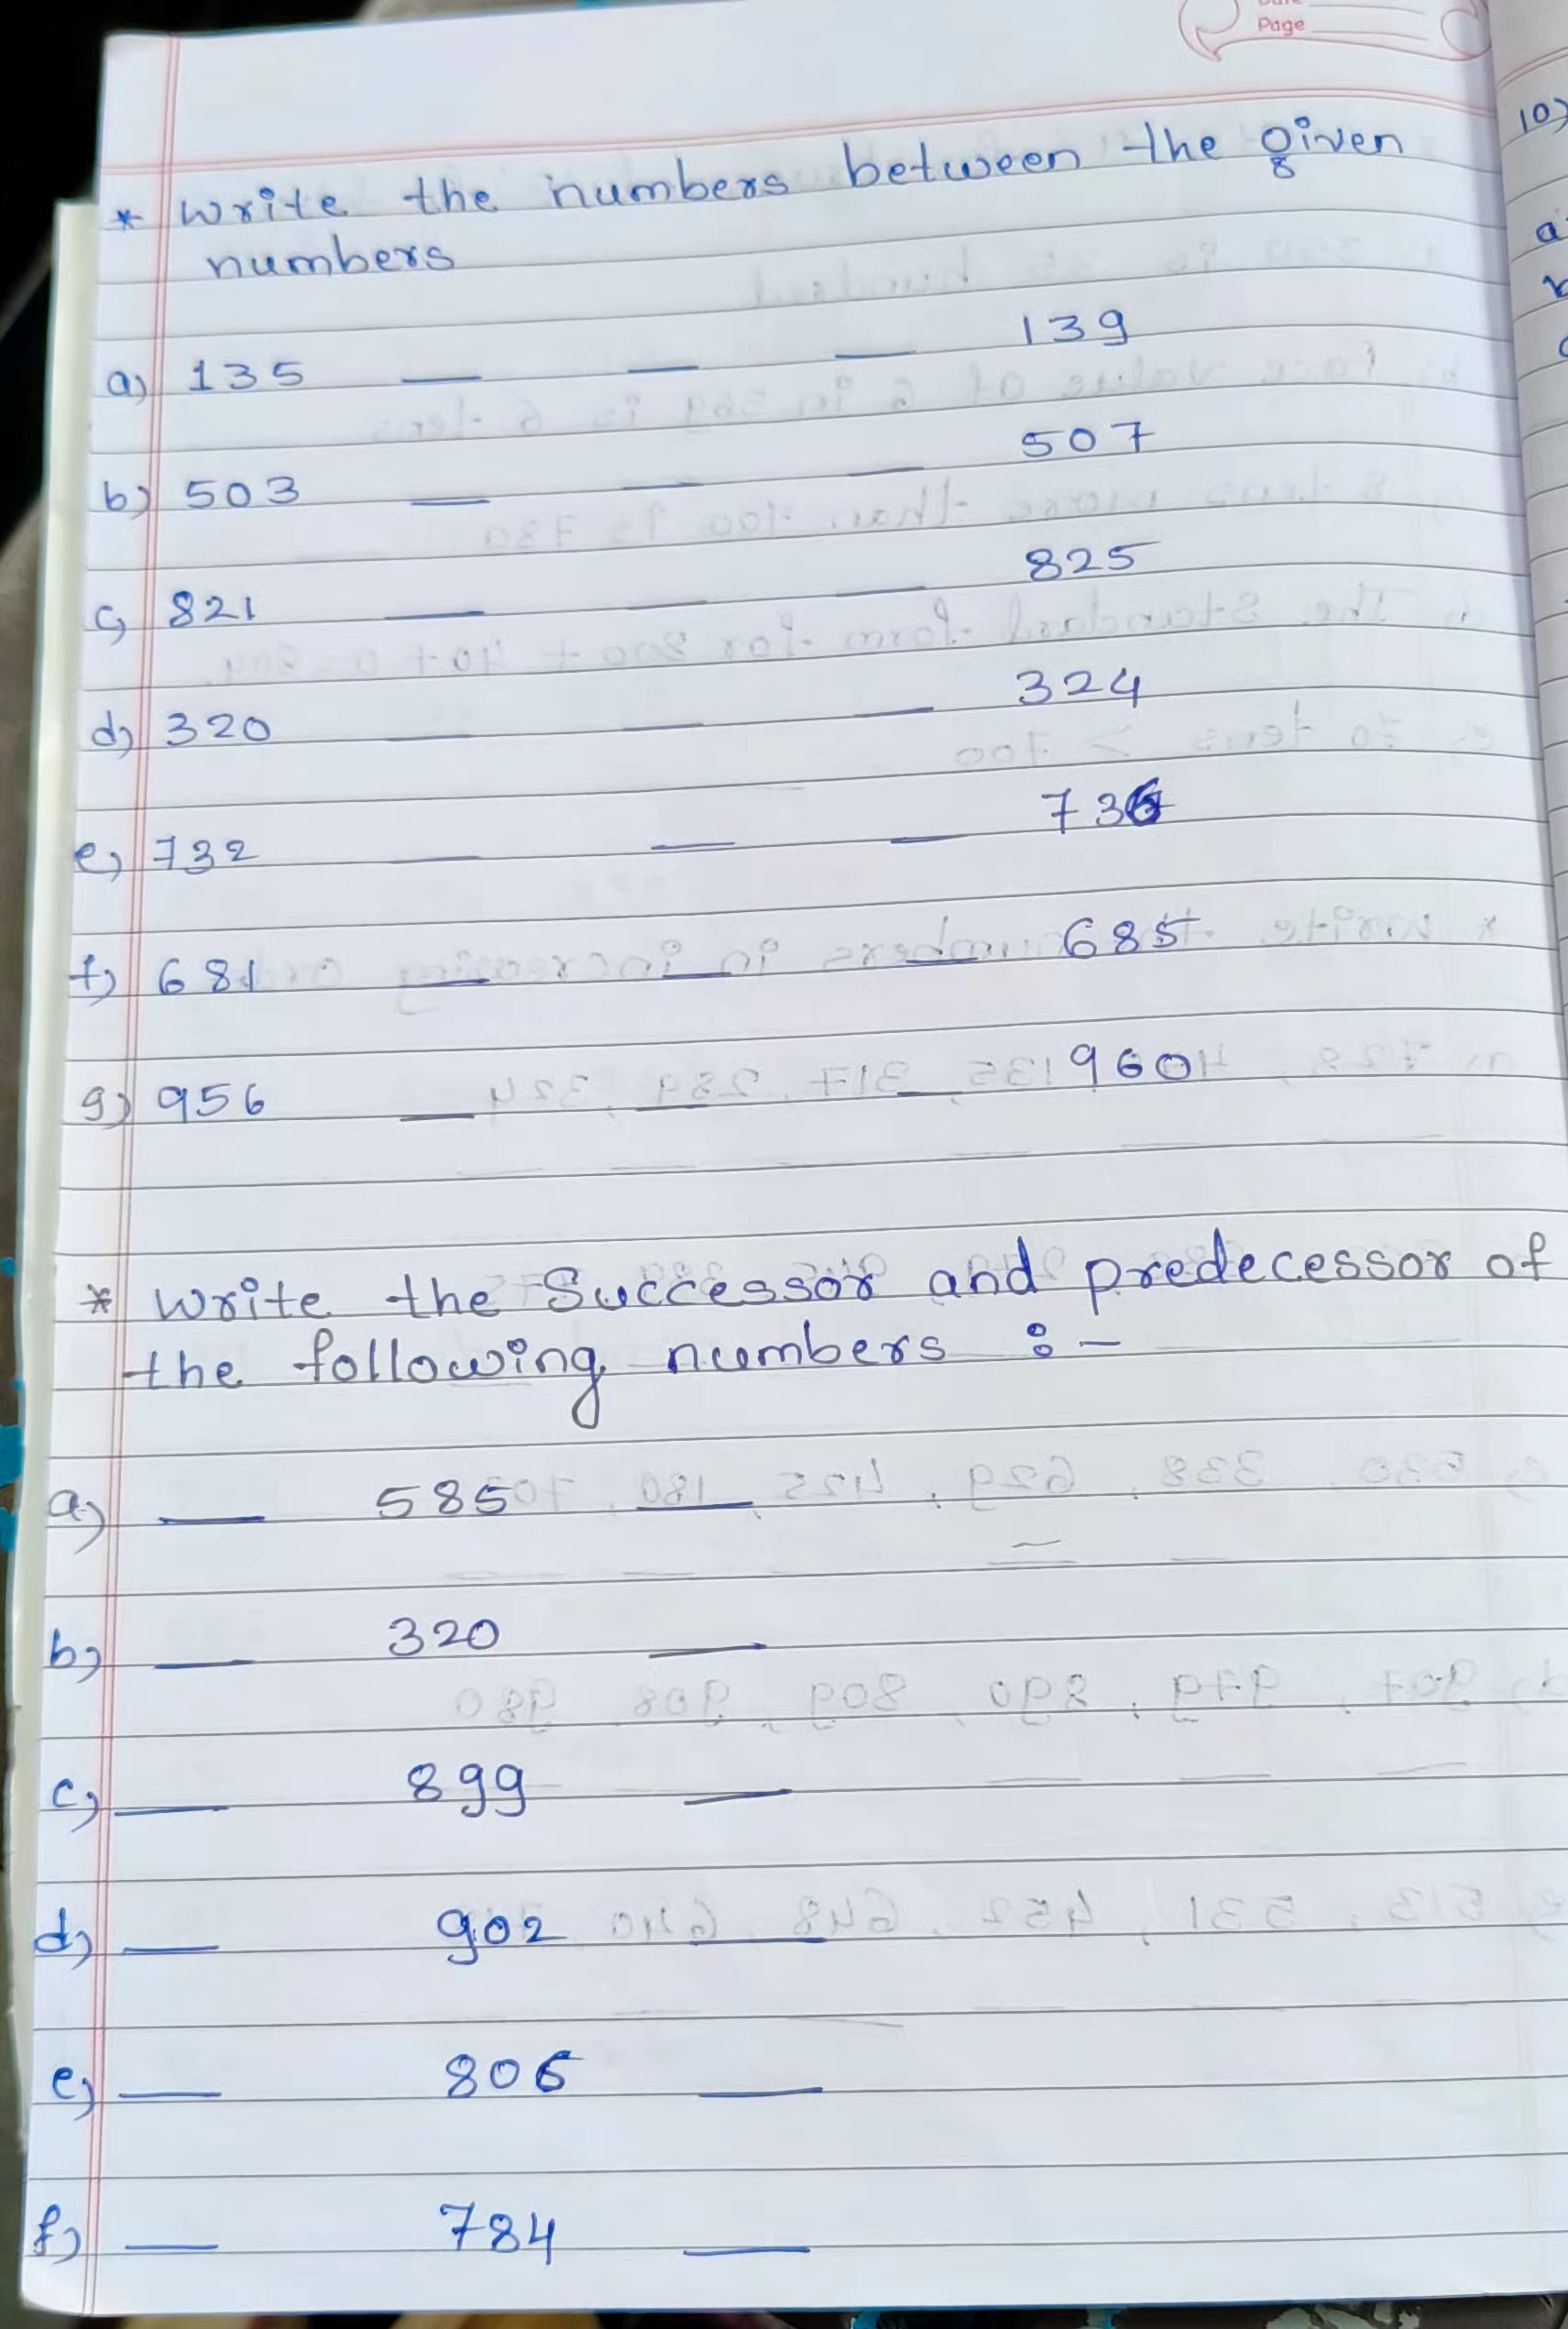 Page
* Write the numbers between the given
numbers
a) 135 — — — 139
b) 503 — — — 507
c) 821 — — — 825
d) 320 — — — 324
e) 732 — — — 736
f) 681 — — — 685
g) 956 — — — 960
* Write the Successor and predecessor of
the following numbers :-
a) — 585 —
b) — 320 —
c) — 899 —
d) — 902 —
e) — 806 —
f) — 784 —
10)
a